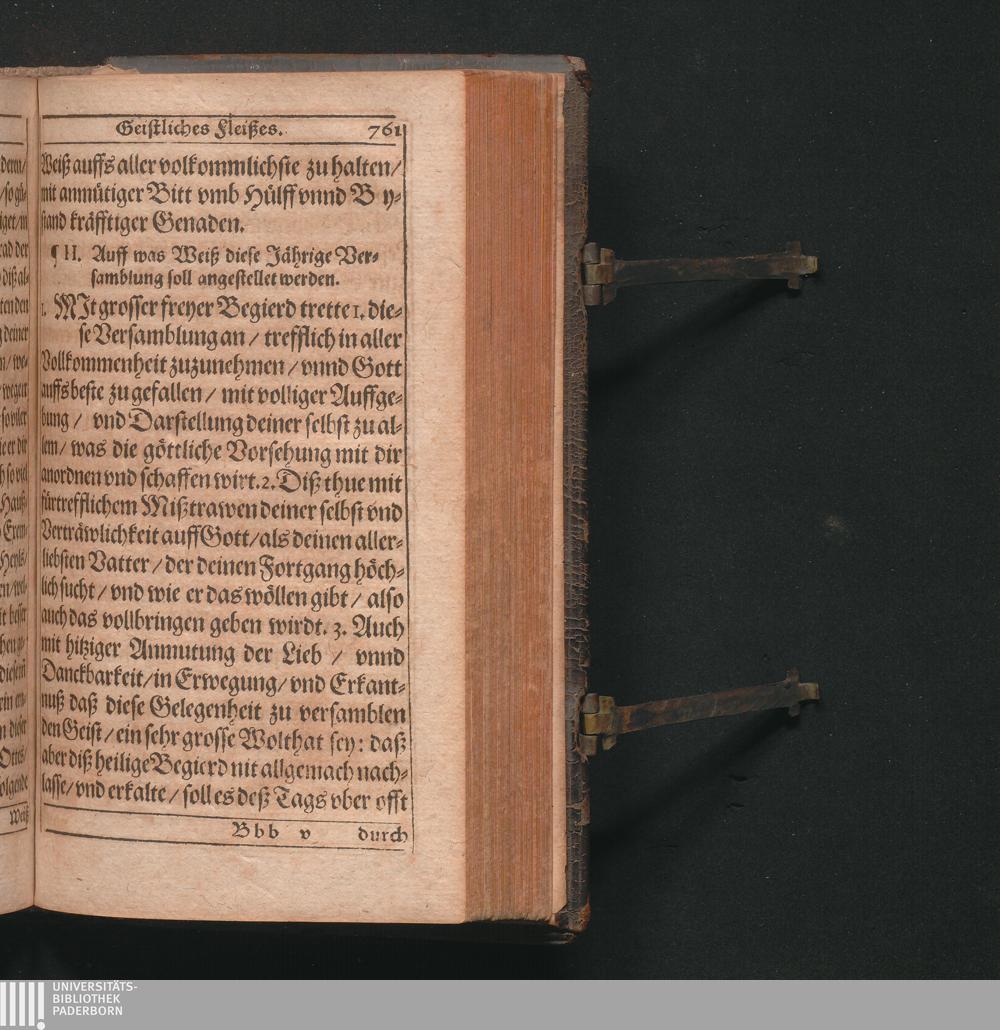 Geistliches Fleißes. 761
Weiß auffs aller volkommlichste zu halten/
mit anmütiger Bitt vmb Hülff vnnd B y-
stand kräfftiger Genaden.
¶ II. Auff was Weiß diese Jährige Ver-
samblung soll angestellet werden.
1. MIt grosser freyer Begierd trette 1. die-
se Versamblung an / trefflich in aller
Vollkommenheit zuzunehmen / vnnd Gott
auffs beste zu gefallen / mit volliger Auffge-
bung / vnd Darstellung deiner selbst zu al-
lem / was die göttliche Vorsehung mit dir
anordnen vnd schaffen wirt. 2. Diß thue mit
fürtrefflichem Mißtrawen deiner selbst vnd
Verträwlichkeit auff Gott / als deinen aller-
liebsten Vatter / der deinen Fortgang höch-
lich sucht / vnd wie er das wöllen gibt / also
auch das vollbringen geben wirdt. 3. Auch
mit hitziger Anmutung der Lieb / vnnd
Danckbarkeit / in Erwegung / vnd Erkant-
nuß daß diese Gelegenheit zu versamblen
den Geist / ein sehr grosse Wolthat sey: daß
aber diß heilige Begierd nit allgemach nach-
lasse / vnd erkalte / soll es deß Tags vber offt
Bbb v durch
UNIVERSITÄTS-
BIBLIOTHEK
PADERBORN